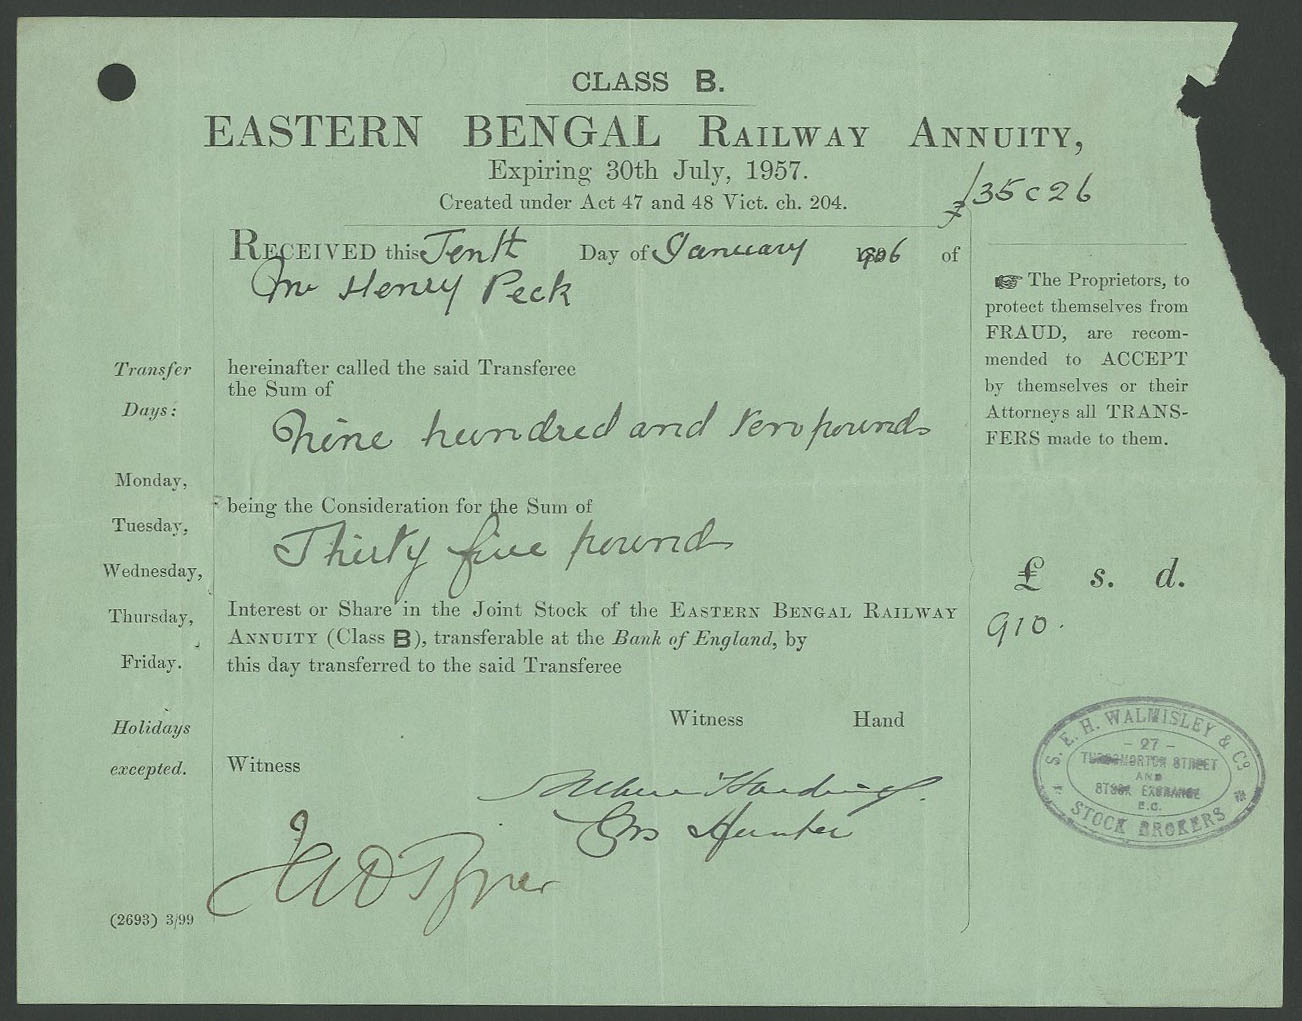 CLASS B.
EASTERN BENGAL RAILWAY ANNUITY,
Expiring 30th July, 1957.
Created under Act 47 and 48 Vict. ch. 204.
£35 c 26
RECEIVED this Tenth Day of January 1906 of
Mr Henry Peck
☞ The Proprietors, to
protect themselves from
FRAUD, are recom-
mended to ACCEPT
by themselves or their
Attorneys all TRANS-
FERS made to them.
Transfer
Days:
Monday,
Tuesday,
Wednesday,
Thursday,
Friday.
Holidays
excepted.
hereinafter called the said Transferee
the Sum of
Nine hundred and ten pounds
being the Consideration for the Sum of
Thirty five pounds
Interest or Share in the Joint Stock of the EASTERN BENGAL RAILWAY
ANNUITY (Class B), transferable at the Bank of England, by
this day transferred to the said Transferee
£ s. d.
910.
Witness Hand
Witness
Hunter
S. E. H. WALMISLEY & Co
- 27 -
THROGMORTON STREET
AND
STOCK EXCHANGE
E.C.
STOCK BROKERS
(2693) 3/99